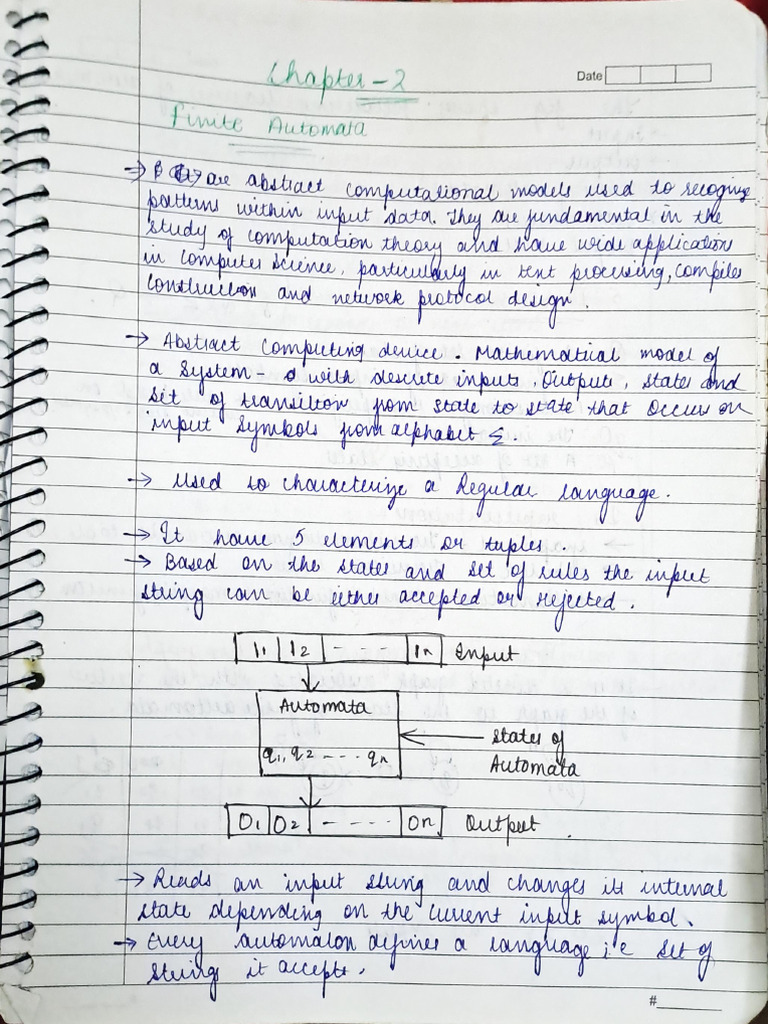 Chapter-2
Date
Finite Automata
→ are abstract computational models used to recognize
patterns within input data. They are fundamental in the
study of computation theory and have wide application
in computer science, particularly in text processing, compiler
construction and network protocol design.
→ Abstract computing device. Mathematical model of
a system - with descrete inputs, Outputs, states and
set of transition from state to state that occurs on
input symbols from alphabet Σ.
→ Used to characterize a Regular language.
→ It have 5 elements or tuples
→ Based on the states and set of rules the input
string can be either accepted or rejected.
I1 I2 - - - In Input
Automata
q1, q2 ---- qn
States of
Automata
O1 O2 - ---- On Output.
→ Reads an input string and changes its internal
state depending on the current input symbol.
→ Every automaton defines a language i.e set of
string it accepts.
#